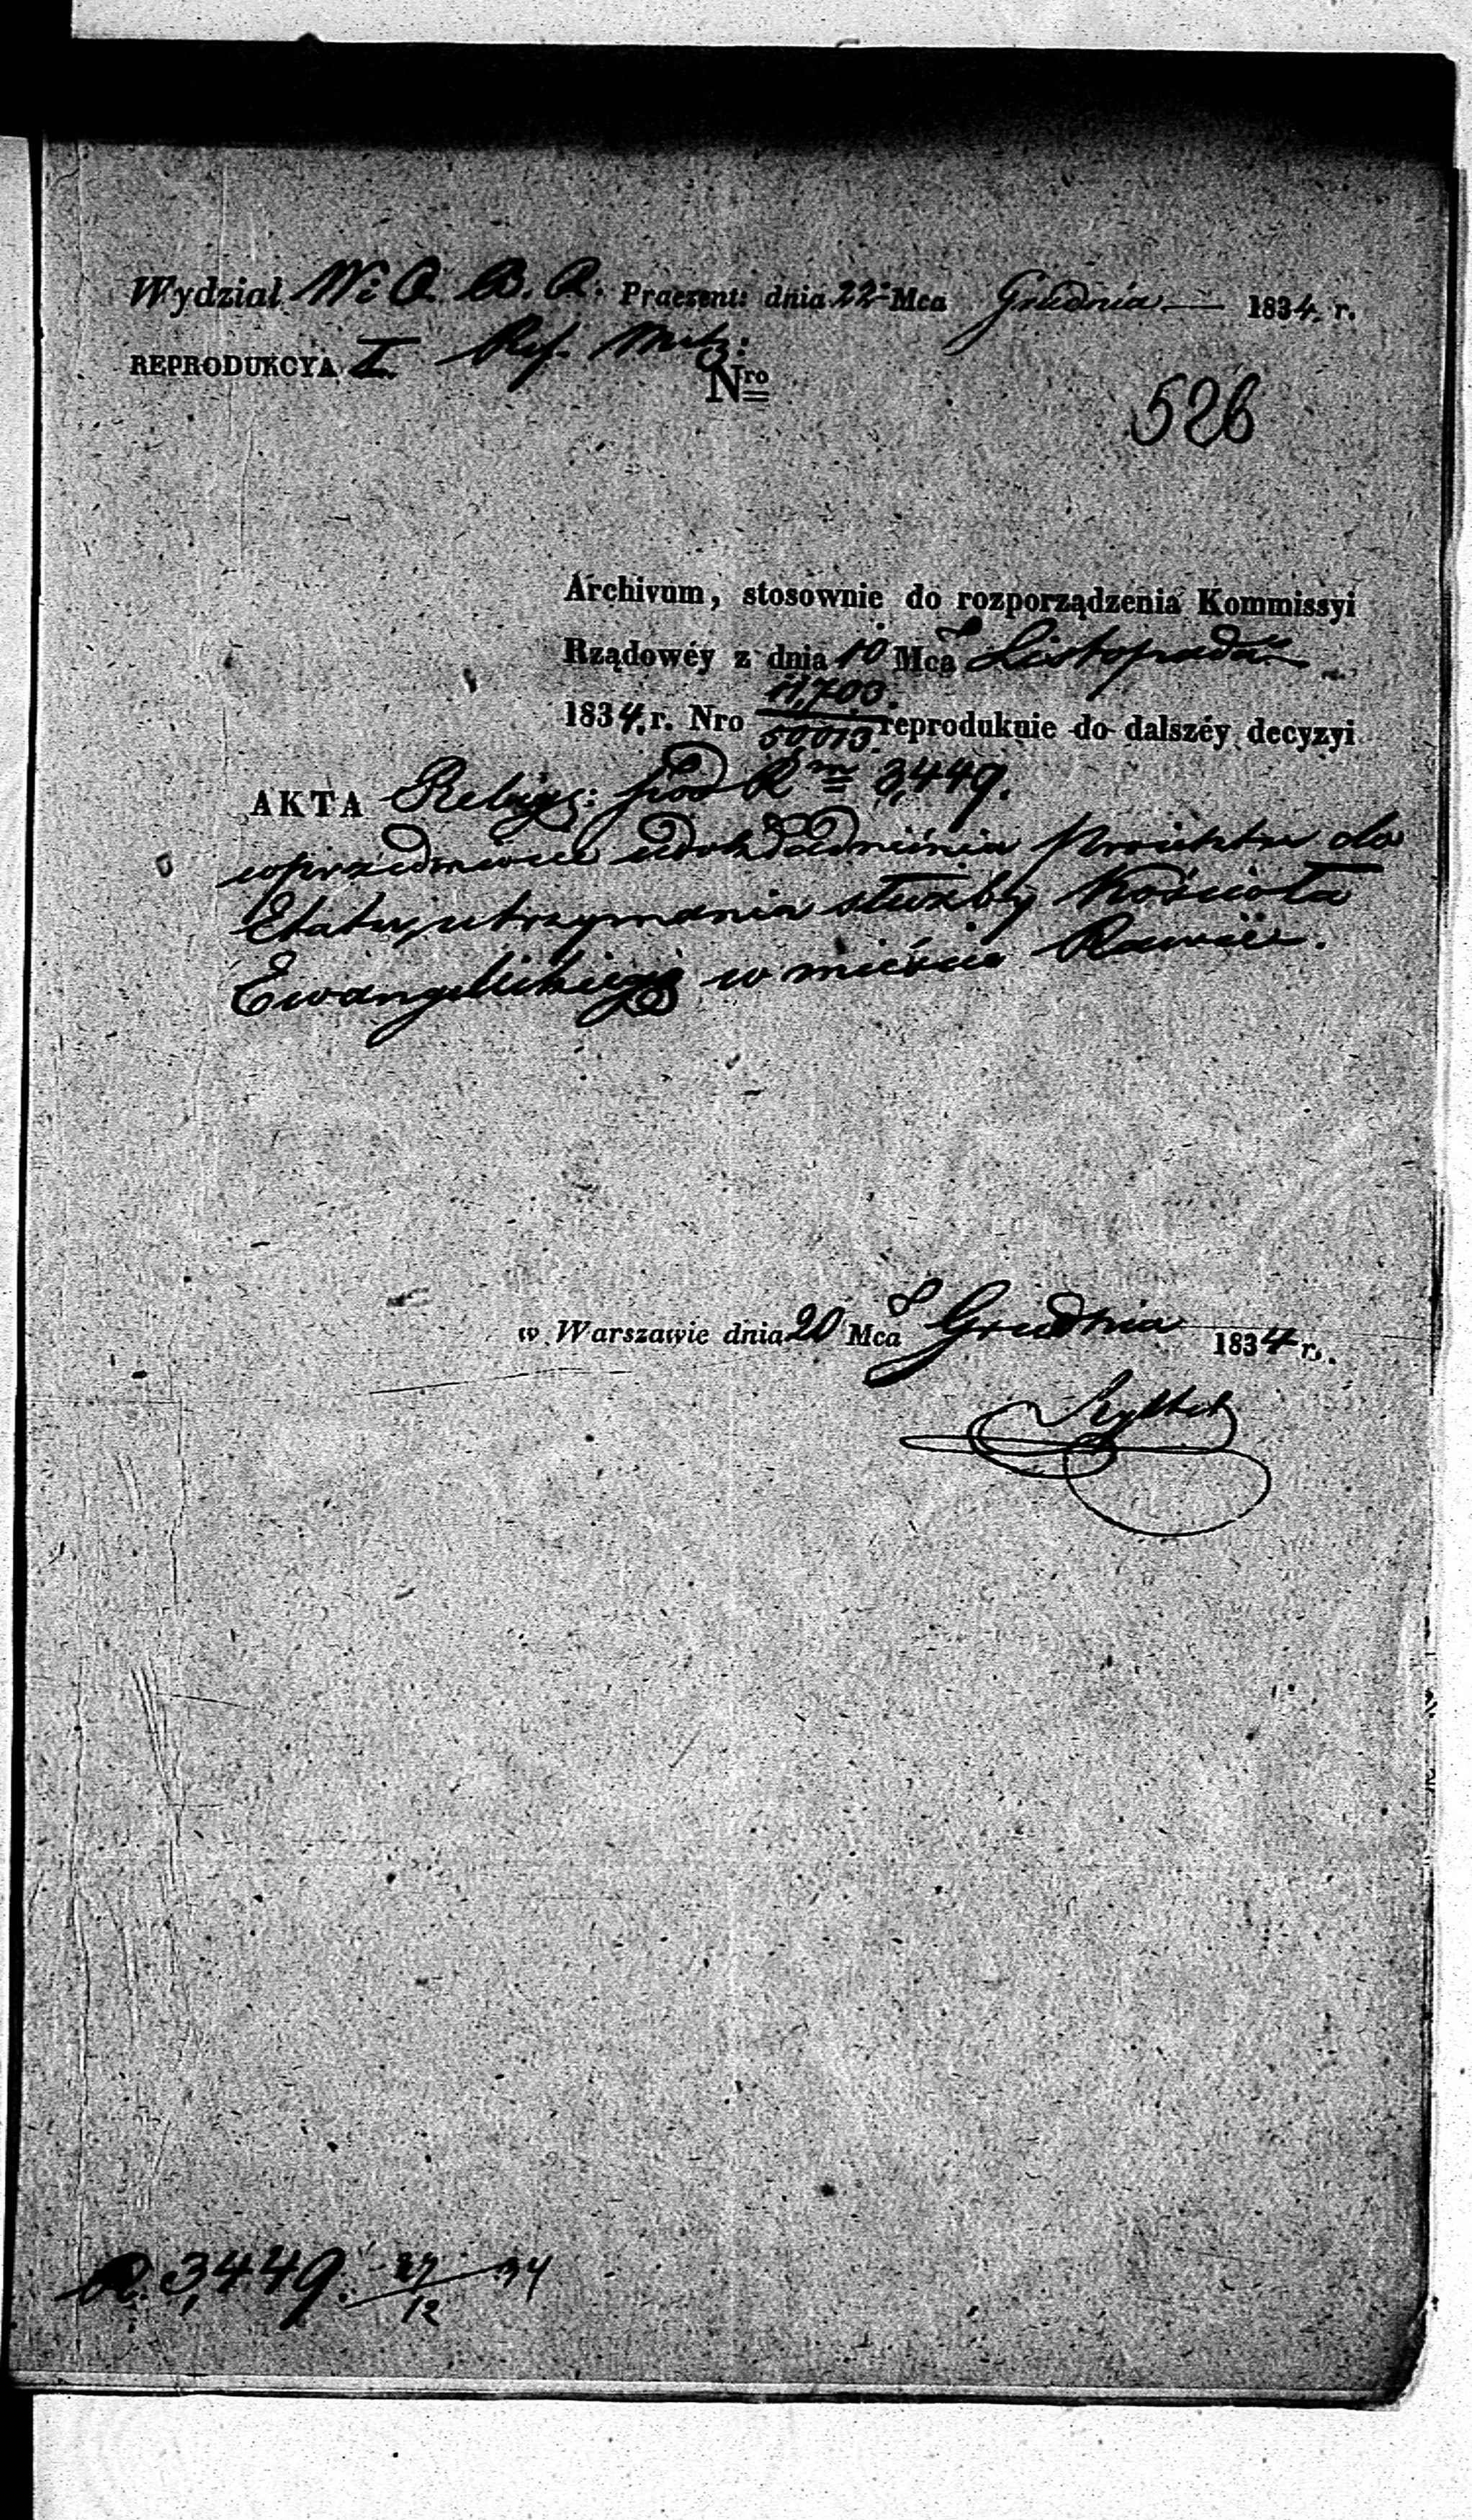 Wydział W. O. B. A. Praesent: dnia 22. Mca Grudnia — 1834. r.
REPRODUKCYA I. Ref.
Nro
526
Archivum, stosownie do rozporządzenia Kommissyi
Rządowéy z dnia 10 Mca Listopada
1834. r. Nro 11,700./50,013. reprodukuie do dalszéy decyzyi
AKTA Religij: pod Rm 3,449.
wprzedmiocie udokładnienia Proiektu do
Etatu, utrzymania służby Kościoła
Ewangelickiego w mieście Rawie.
w Warszawie dnia 20 Mca Grudnia 1834 r.
R. 3,449. 27/12 34